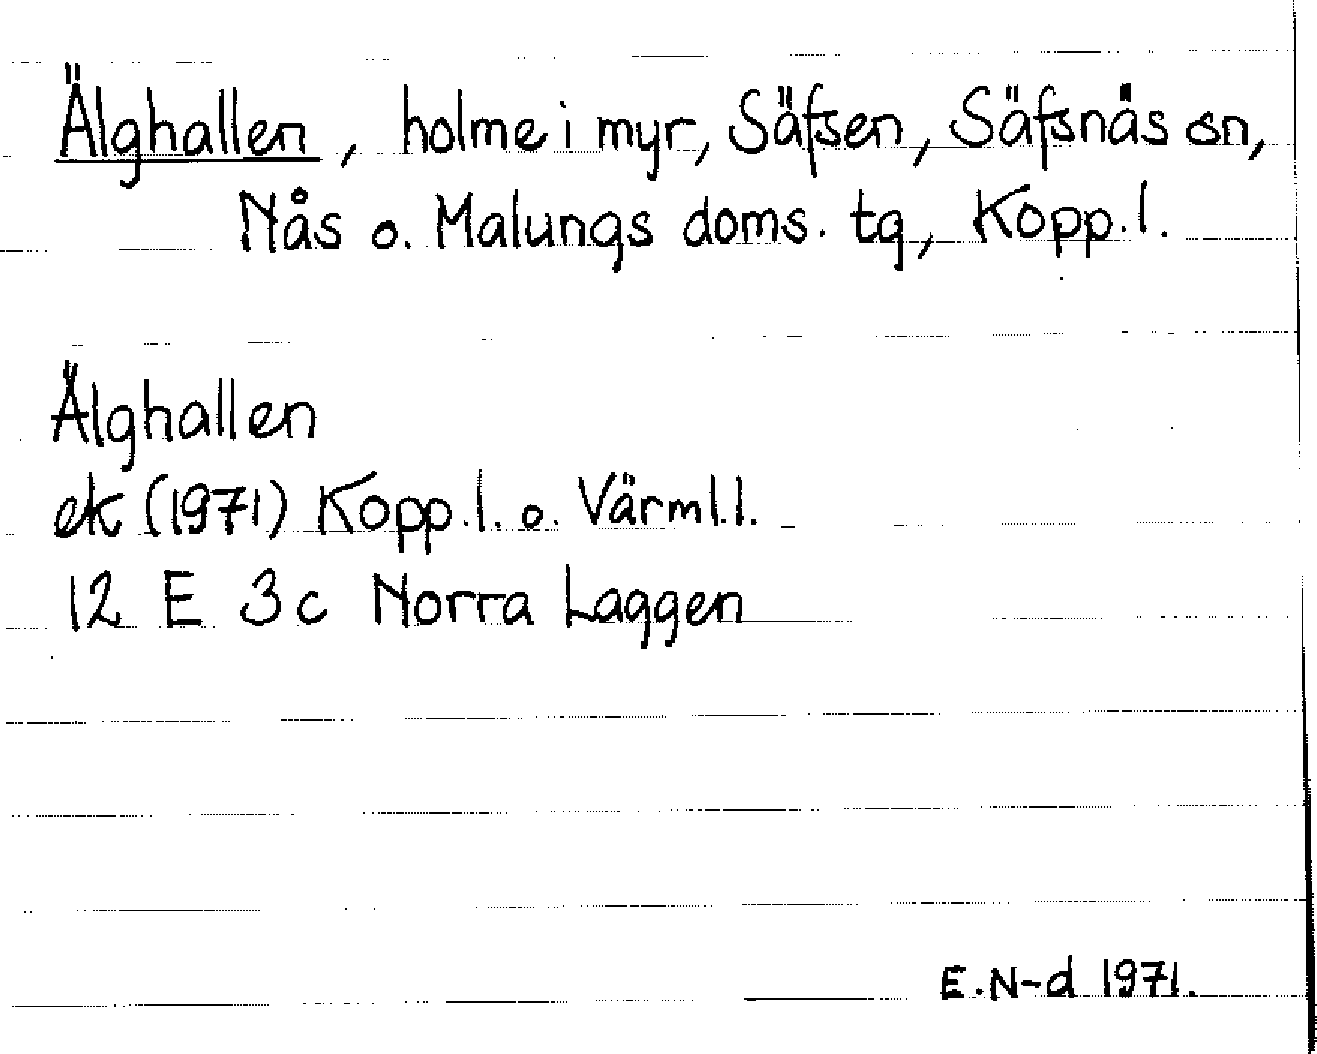 Älghallen, holme i myr, Säfsen, Säfsnäs sn,
Nås o. Malungs doms. tg, Kopp.l.
Älghallen
ek (1971) Kopp.l. o. Värml.l.
12 E 3c Norra Laggen
E.N-d 1971.